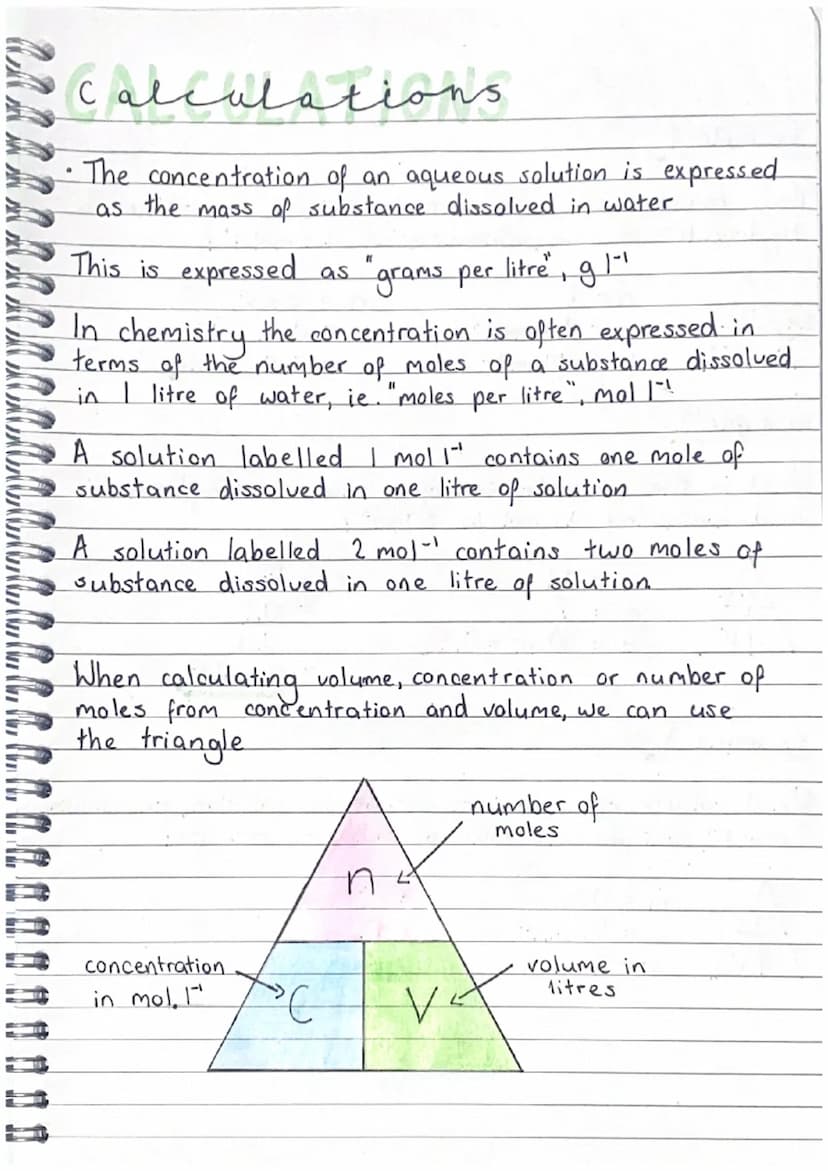 CALCULATIONS
calculations
· The concentration of an aqueous solution is expressed
as the mass of substance dissolved in water
This is expressed as "grams per litre", g l⁻¹
In chemistry the concentration is often expressed in
terms of the number of moles of a substance dissolved
in 1 litre of water, ie. "moles per litre", mol l⁻¹
A solution labelled 1 mol l⁻¹ contains one mole of
substance dissolved in one litre of solution
A solution labelled 2 mol⁻¹ contains two moles of
substance dissolved in one litre of solution
When calculating volume, concentration or number of
moles from concentration and volume, we can use
the triangle
number of
moles
n
concentration
in mol. l⁻¹
C
V
volume in
litres